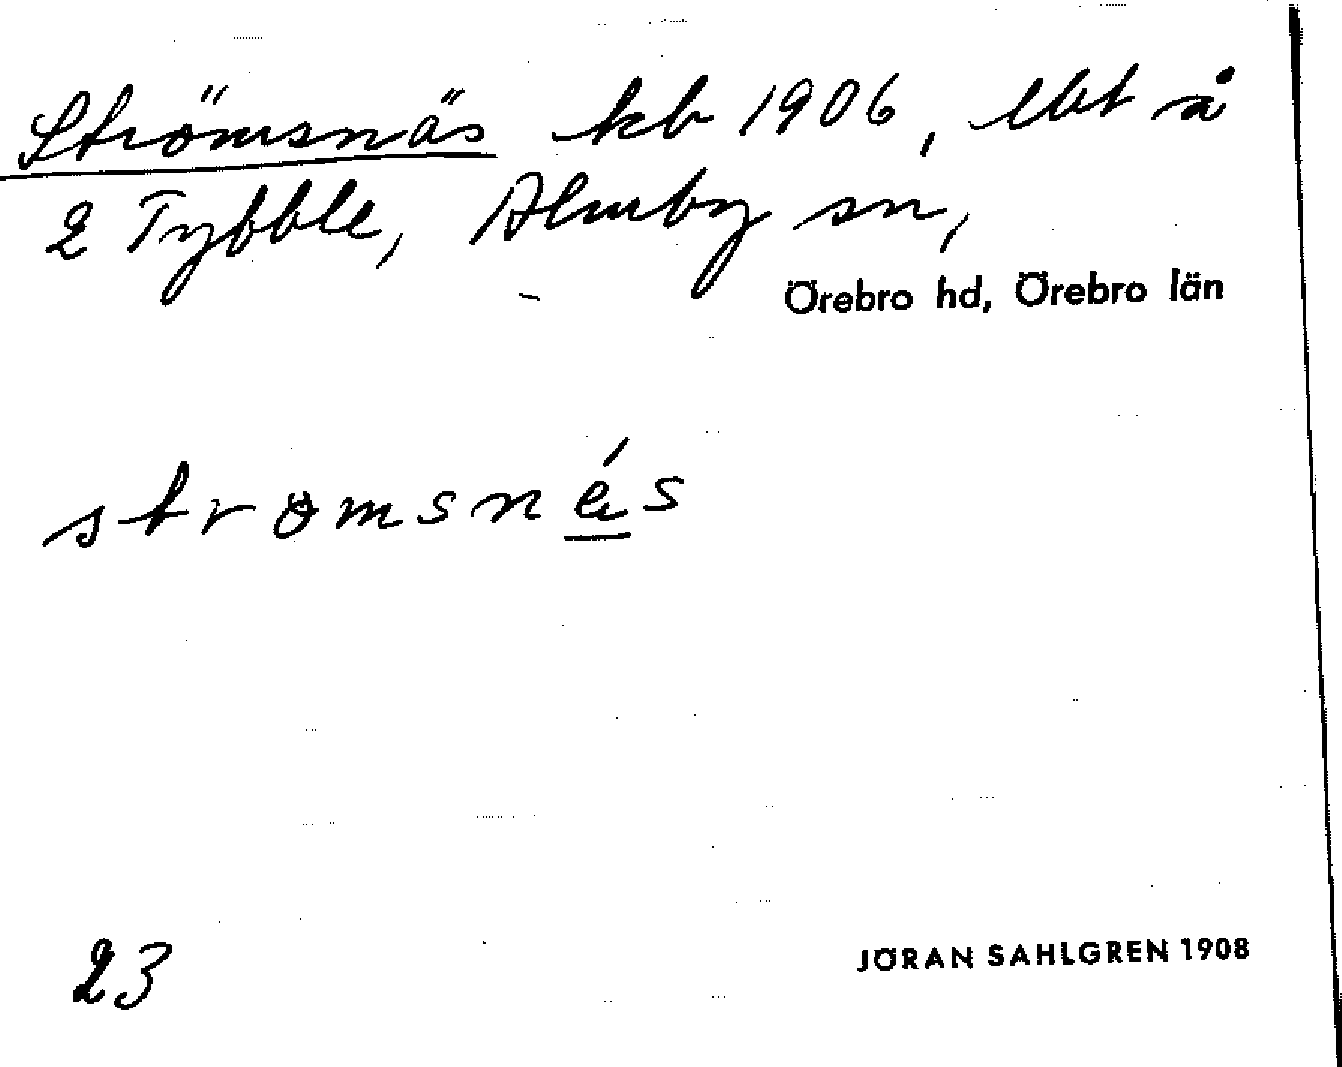 Strömsnäs kb 1906, lbt å
2 Tybble, Almby sn,
Örebro hd, Örebro län
strömsnés
23
JÖRAN SAHLGREN 1908